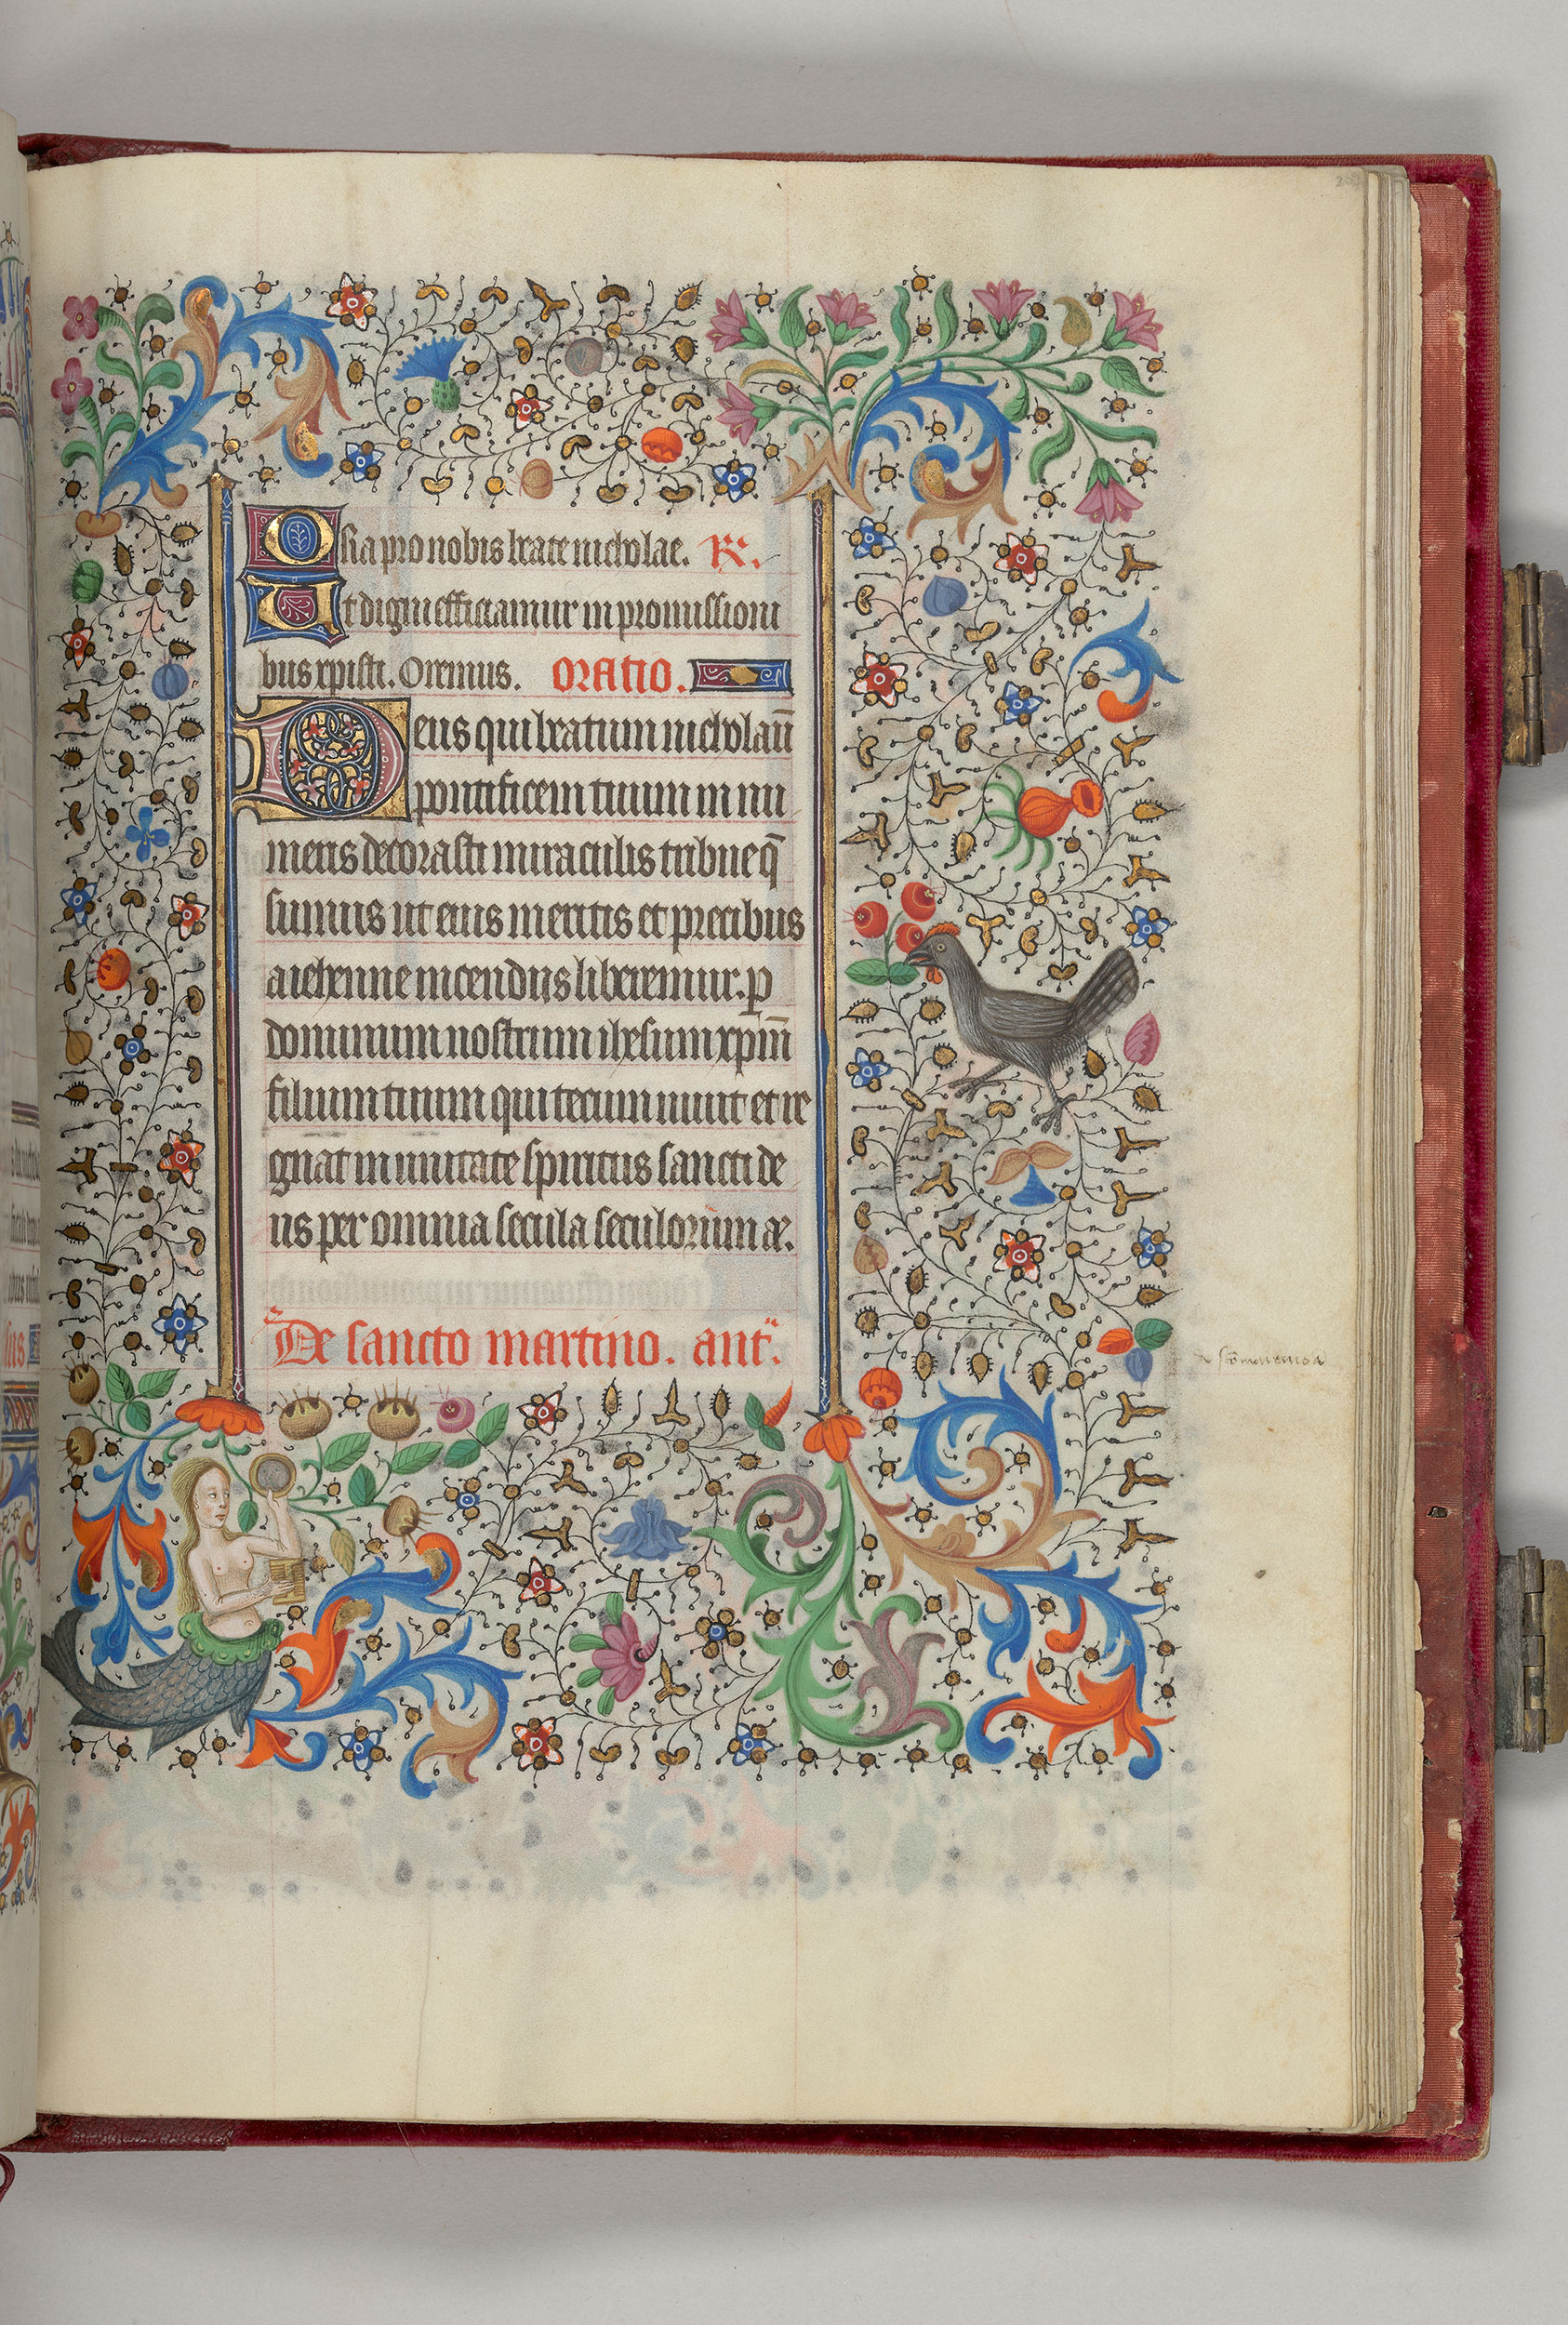 Ora pro nobis beate nicholae. R̃.
Ut digni efficiamur in promissioni
bus xpisti. Oremus. Oratio.
Deus qui beatum nicholaũ
pontificem tuum in nu
meris decorasti miraculis tribue q̃
sumus ut eius meritis et precibus
a iehenne incendiis liberemur. p
dominum nostrum ihesum xpm̃
filium tuum qui tecum uiuit et re
gnat in unitate spiritus sancti de
us per omnia secula seculorum ae.
De sancto martino. ant̃.